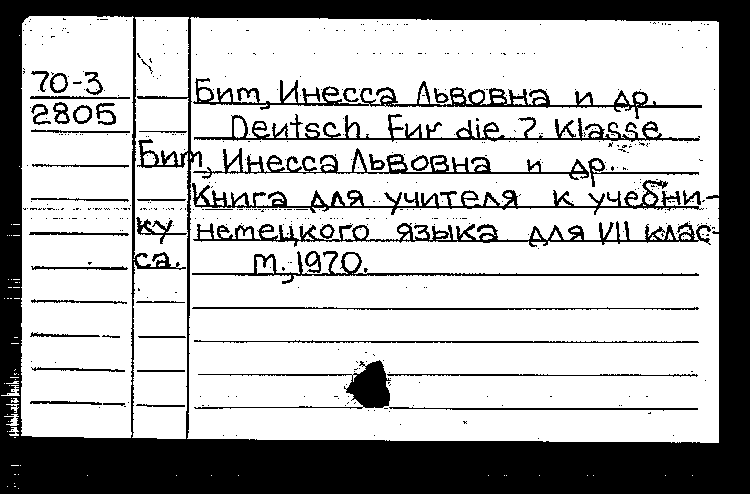 70-3
2805
Бим, Инесса Львовна и др.
Deutsch. Fur die 7. Klasse
Бим, Инесса Львовна и др.
Книга для учителя к учебни-
ку немецкого языка для VII клас-
са. М., 1970.